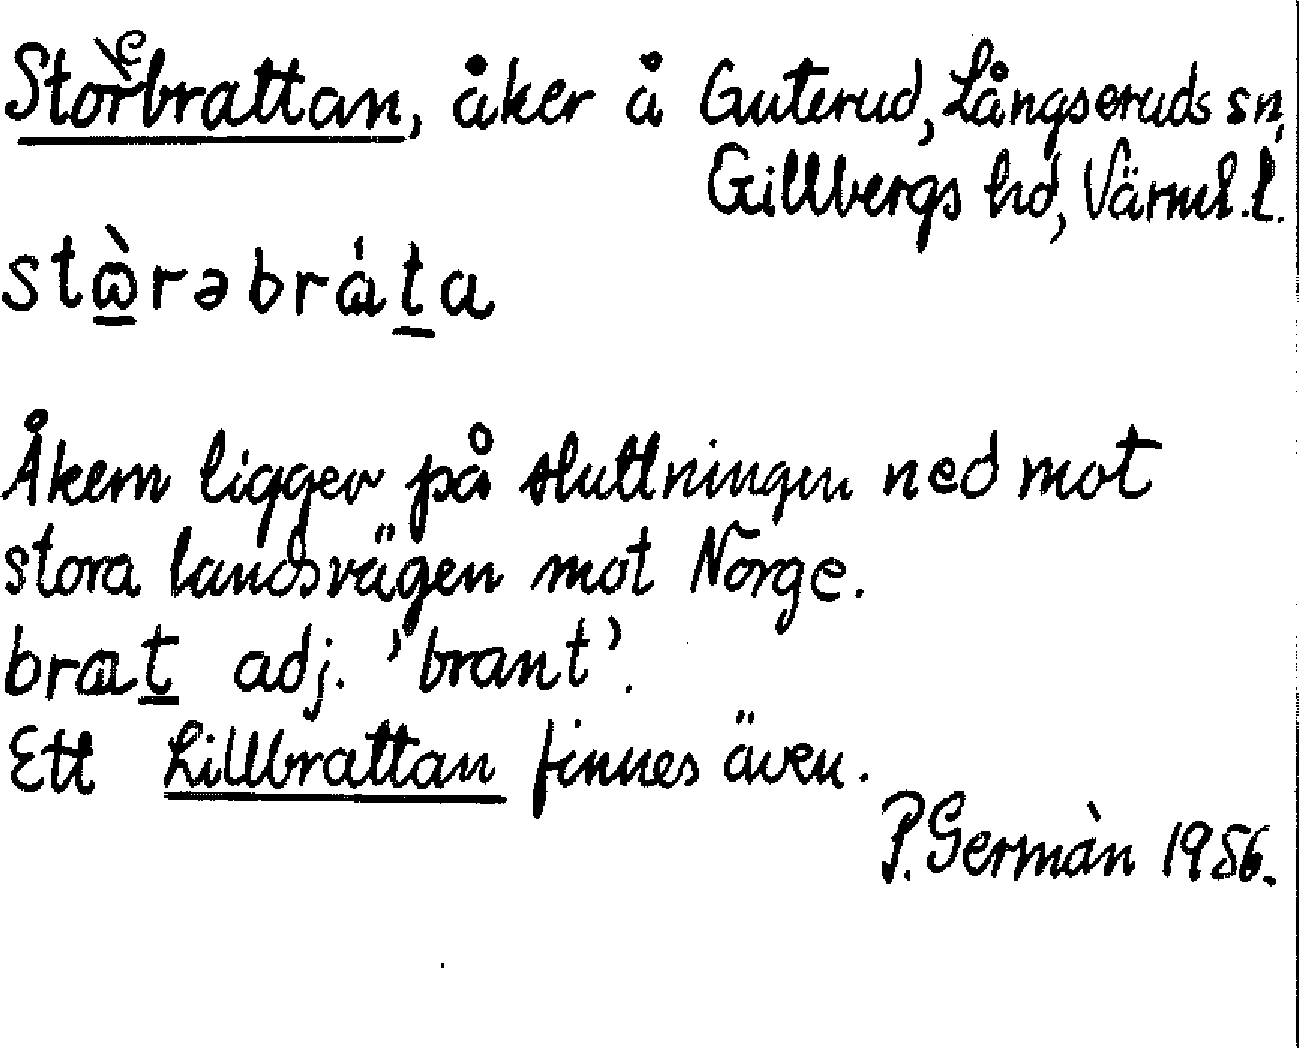 Storebrattan, åker å Guterud, Långseruds sn,
Gillbergs hd, Värml. l.
stὼ̠rəbrάt̠a
Åkern ligger på sluttningen ned mot
stora landsvägen mot Norge.
brαt̠ adj. 'brant'.
Ett Lillbrattan finnes även.
P. Germàn 1956.